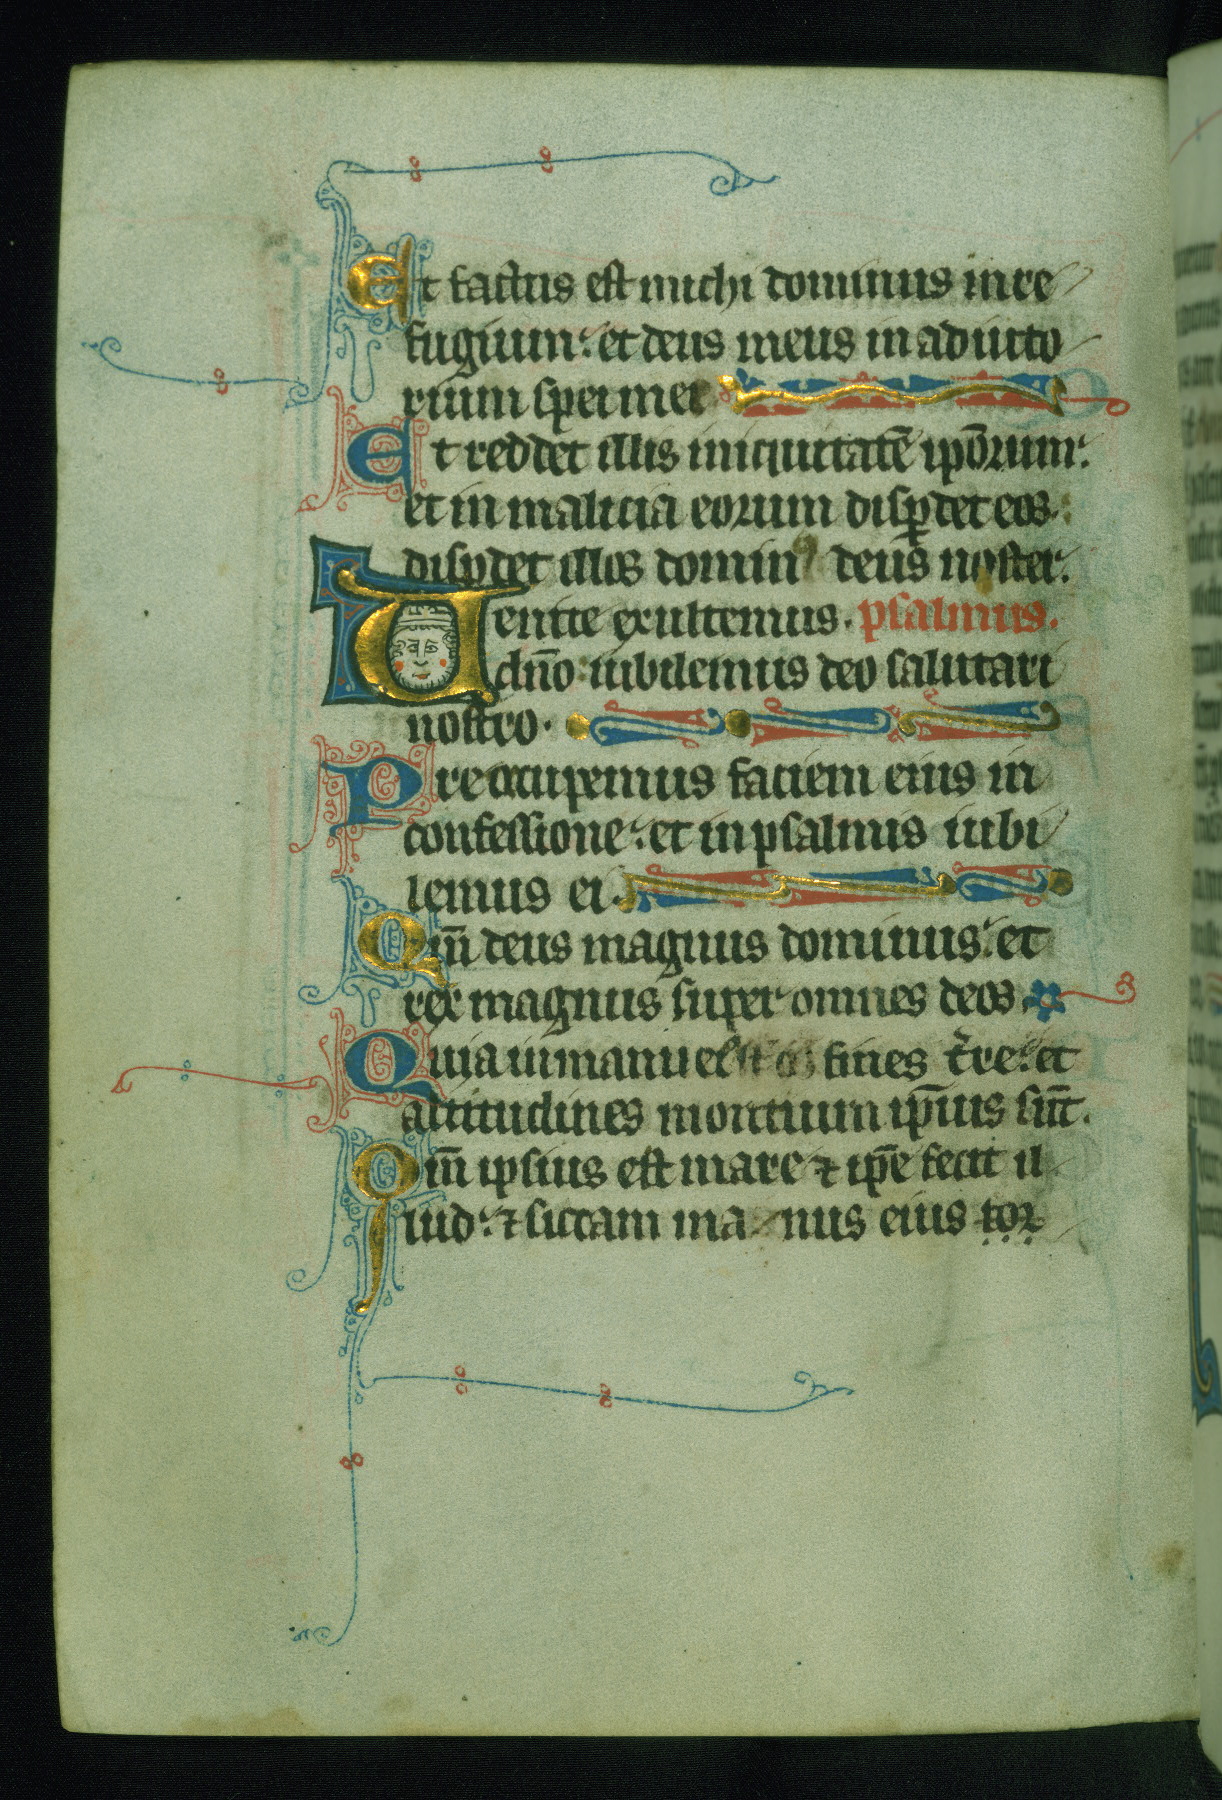 Et factus est michi dominus in re
fugium: et deus meus in adiuto
rium spei mei
Et reddet illis iniquitatē ip̄orum:
et in malicia eorum disꝑdet eos.
disꝑdet illos dominꝰ deus noster.
Uenite exultemus. psalmus.
dn̄o iubilemus deo salutari
nostro.
Preocupemus faciem eius in
confessione: et in psalmis iubi
lemus ei.
Qm̄ deus magnus dominus: et
rex magnus super omnes deos.
Quia in manu ei fines t̄re: et
altitudines montium ip̄ius sūt.
Qm̄ ipsius est mare ⁊ ip̄e fecit il
lud: ⁊ siccam ma nus eius for